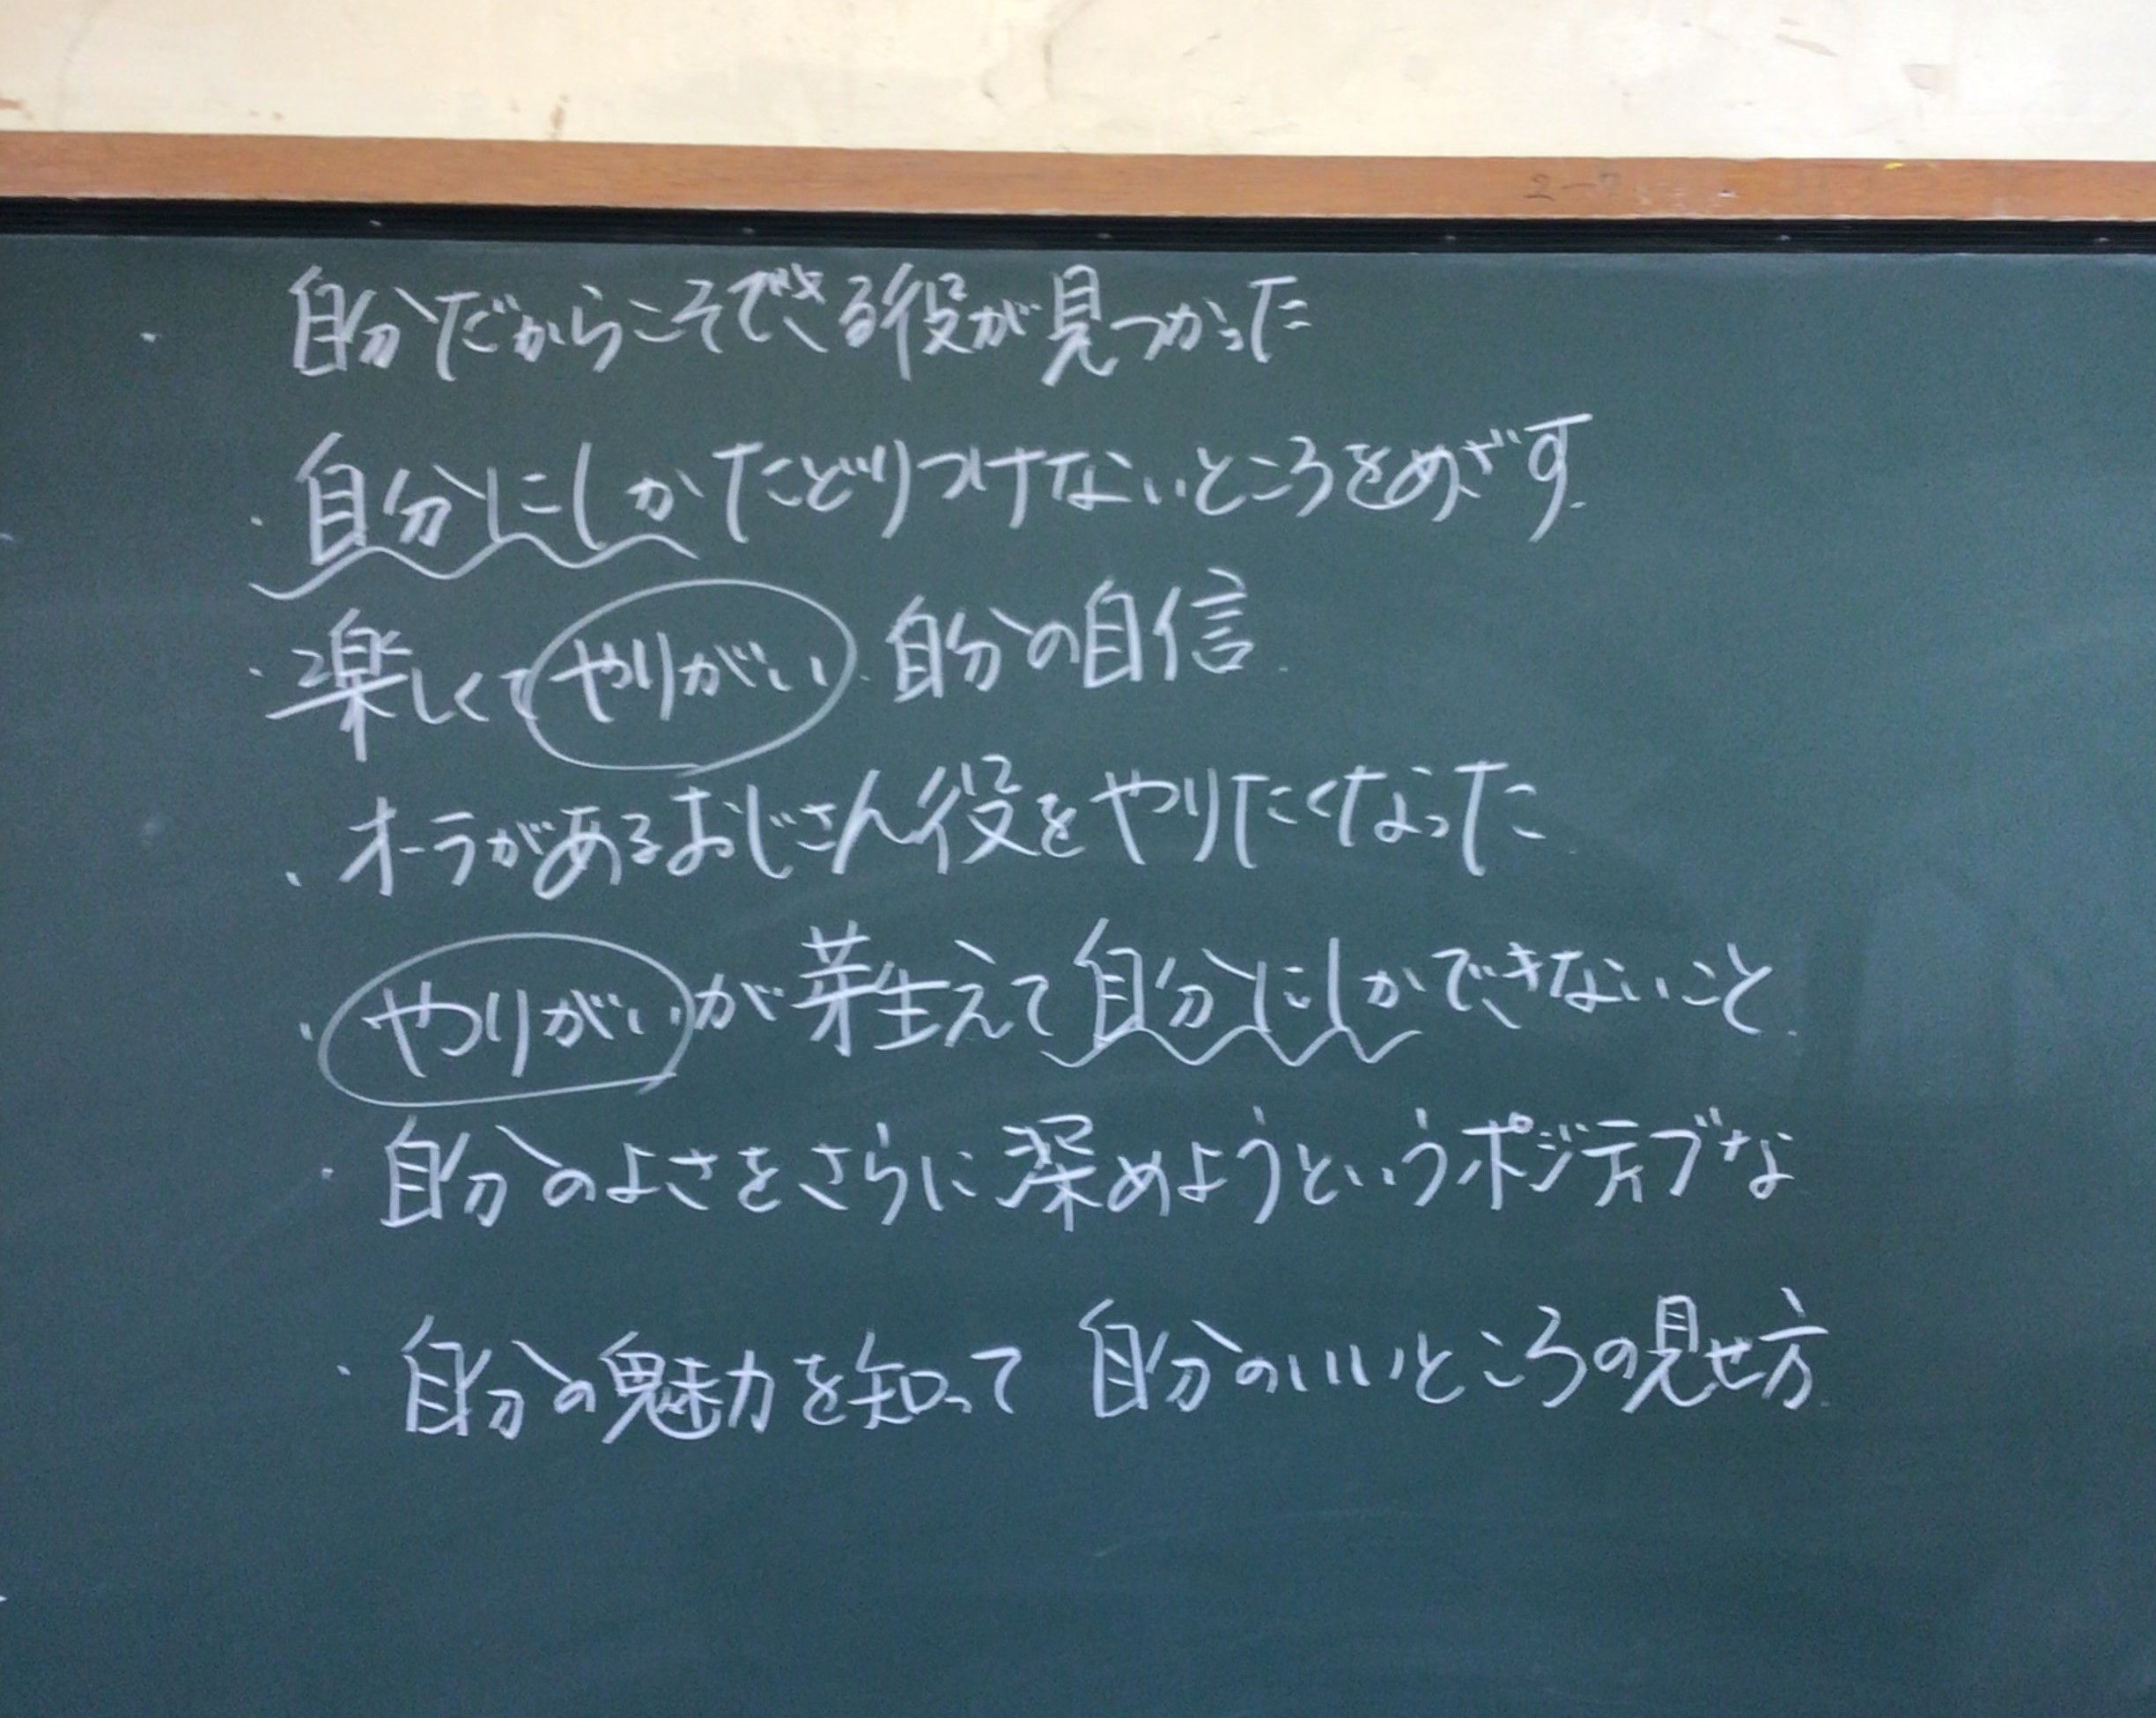 自分だからこそできる役が見つかった
・自分にしかたどりつけないところをめざす.
・楽しくてやりがい.自分の自信.
・オーラがあるおじさん役をやりたくなった
・やりがいが芽生えて自分にしかできないこと.
・自分のよさをさらに深めようというポジティブな
・自分の魅力を知って 自分のいいところの見せ方.